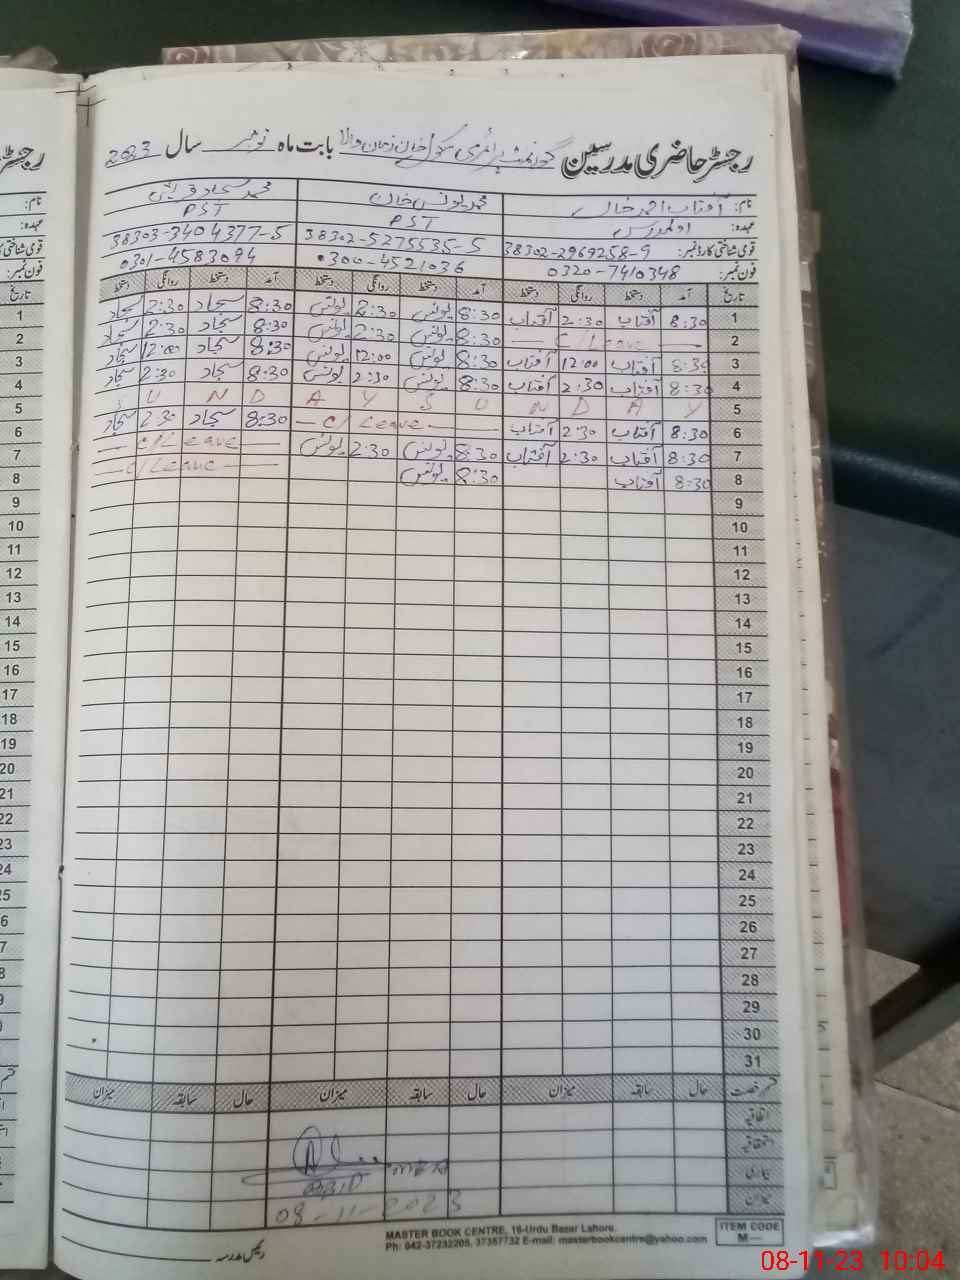 رجسٹر حاضری مدرسین گورنمنٹ پرائمری سکول خان زمان والا بابت ماہ نومبر سال 2023
نام: آفتاب احمد خان محمد یونس خان محمد سجاد قریشی
عہدہ: PST PST
قومی شناختی کارڈ نمبر: 38302-2969258-9 38302-5275535-5 38303-3404377-5
فون نمبر: 0320-7410348 0300-4521036 0301-4583094
تاریخ آمد دستخط روانگی دستخط آمد دستخط روانگی دستخط آمد دستخط روانگی دستخط
1 8:30 آفتاب 2:30 آفتاب 8:30 یونس 2:30 یونس 8:30 سجاد 2:30 سجاد
2 — C/Leave — 8:30 یونس 2:30 یونس 8:30 سجاد 2:30 سجاد
3 8:30 آفتاب 12:00 آفتاب 8:30 یونس 12:00 یونس 8:30 سجاد 12:00 سجاد
4 8:30 آفتاب 2:30 آفتاب 8:30 یونس 2:30 یونس 8:30 سجاد 2:30 سجاد
5 S U N D A Y S U N D A Y
6 8:30 آفتاب 2:30 آفتاب — C/Leave — 8:30 سجاد 2:30 سجاد
7 8:30 آفتاب 2:30 آفتاب 8:30 یونس 2:30 یونس — C/Leave —
8 8:30 آفتاب 8:30 یونس — C/Leave —
9
10
11
12
13
14
15
16
17
18
19
20
21
22
23
24
25
26
27
28
29
30
31
قسم رخصت حال سابقہ میزان حال سابقہ میزان حال سابقہ میزان
اتفاقیہ
استحقاقیہ
بیماری
میزان
08-11-2023
رئیس مدرسہ
MASTER BOOK CENTRE, 16-Urdu Bazar Lahore.
Ph: 042-37232205, 37357732 E-mail: masterbookcentre@yahoo.com
ITEM CODE
M—
08-11-23 10:04